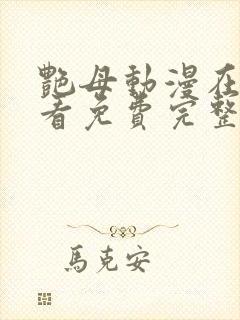 艷母動漫在
看免費完整
馬克安